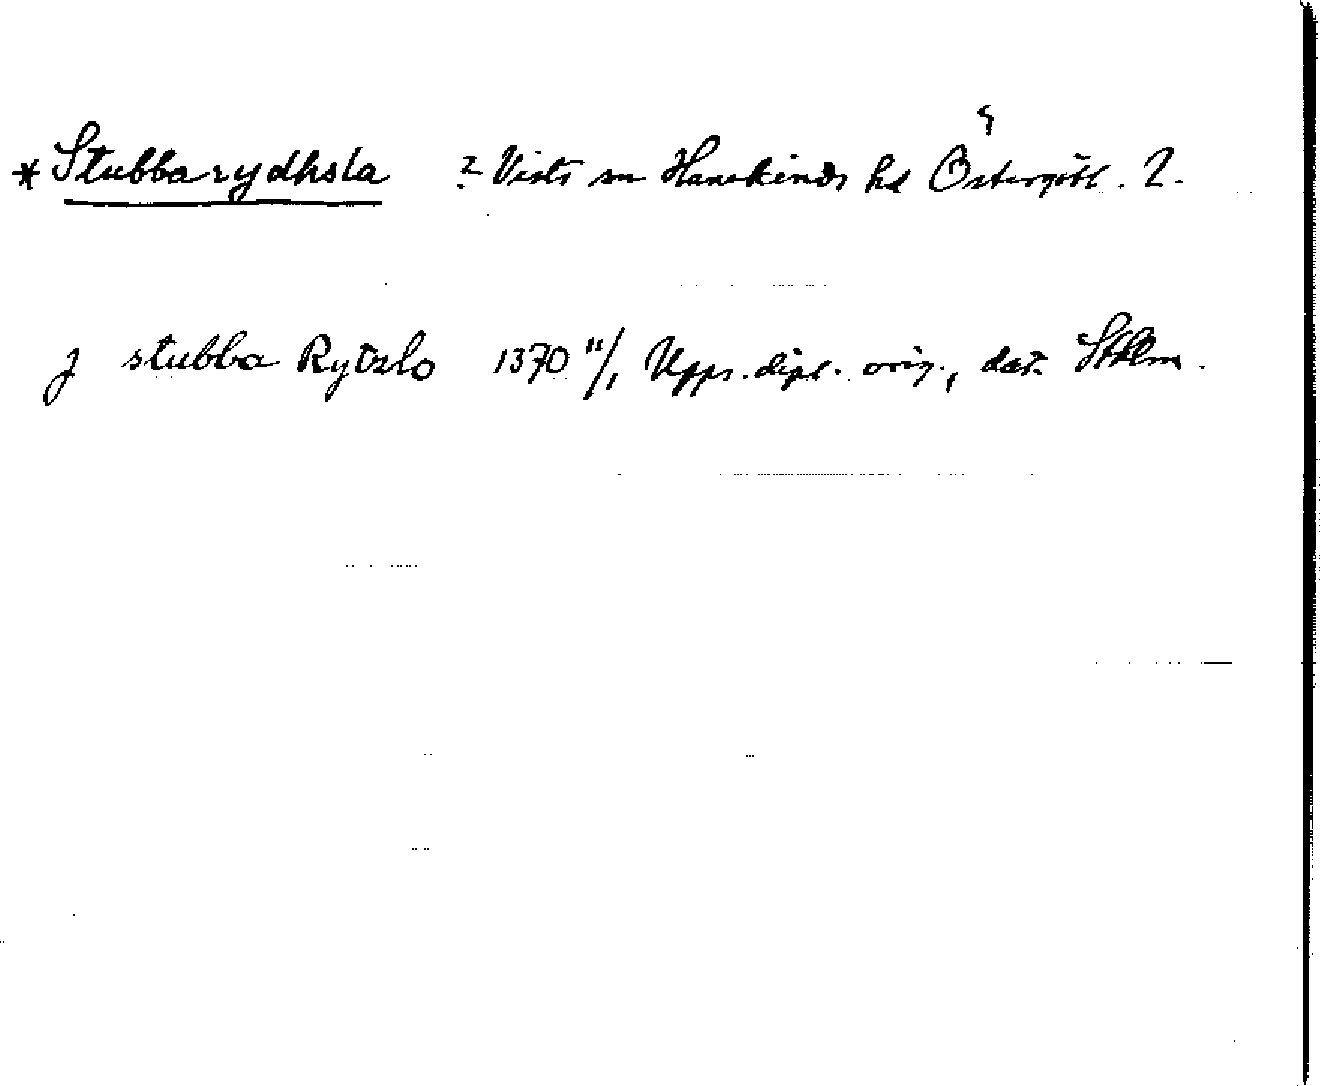 * Stubbarydhsla ? Vists sn Hanekinds hd Östergötl. l.
j stubba Rytzlo 1370 11/1 Upps. dipl. orig., dat. Sthlm.